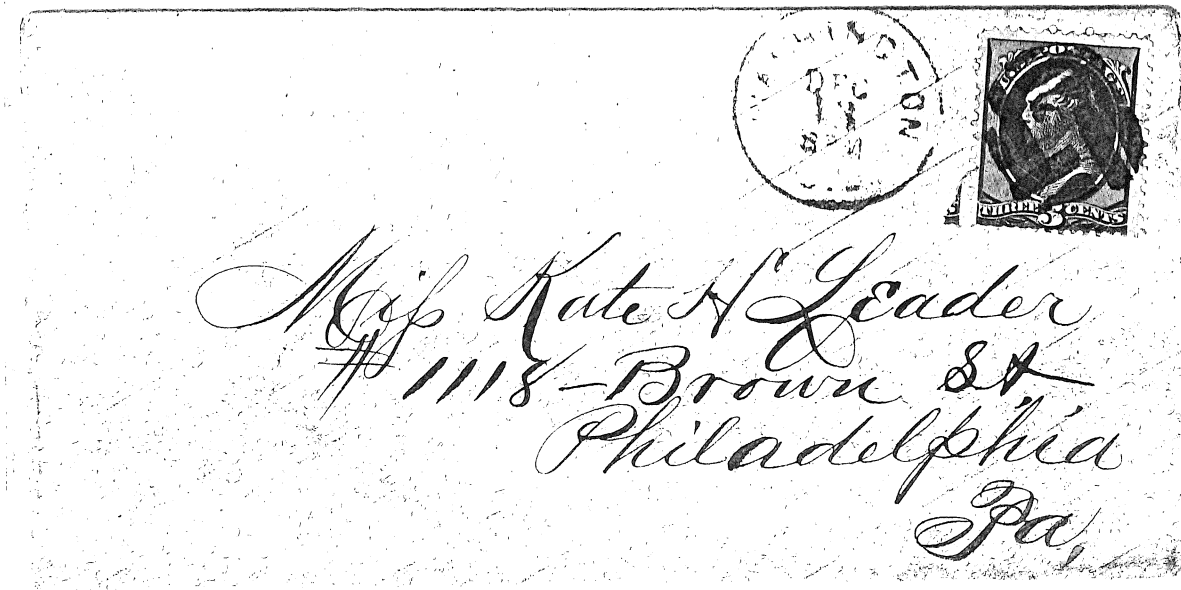 WASHINGTON
DEC
11
8 PM
U.S. POSTAGE
THREE 3 CENTS
Miss Kate H Leader
# 1118 - Brown St
Philadelphia
Pa,